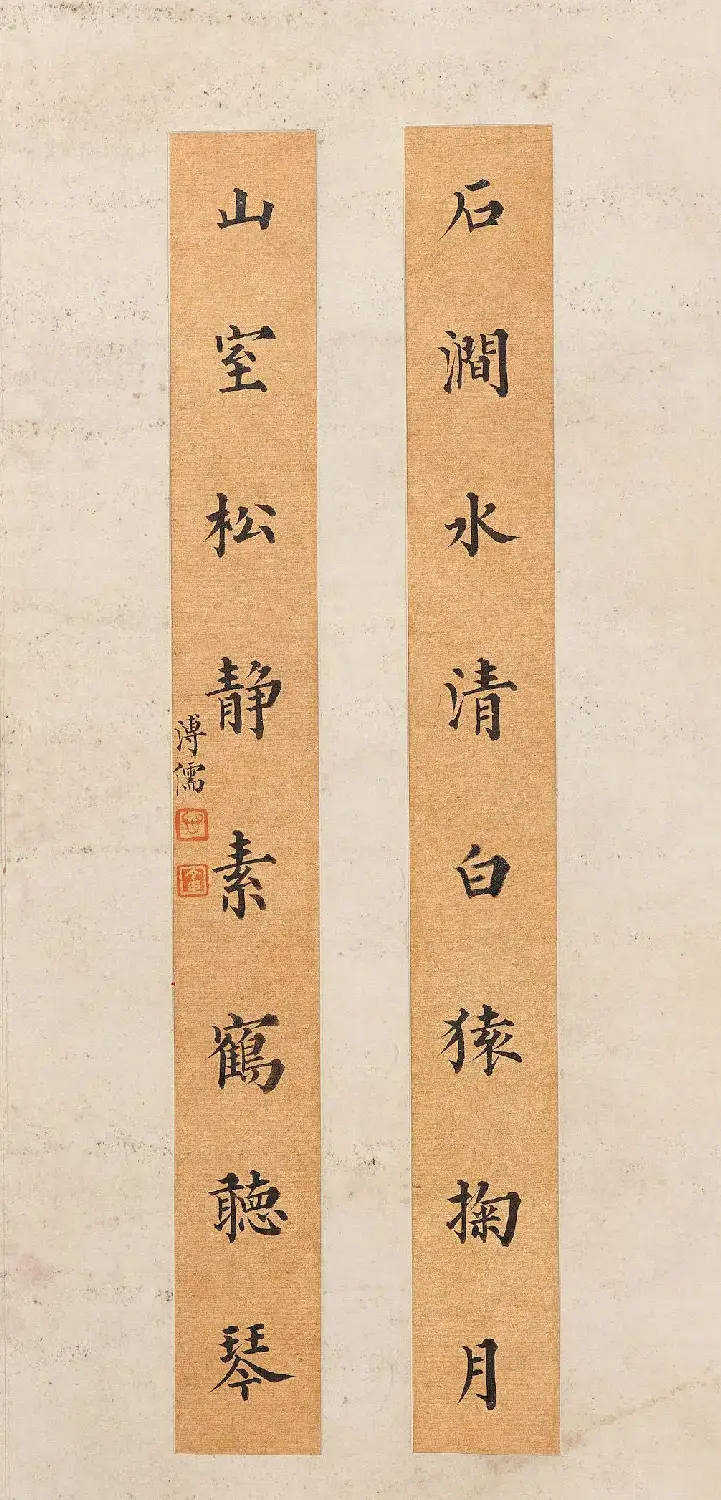 石澗水清白猿掬月
山室松静素鶴聽琴
溥儒